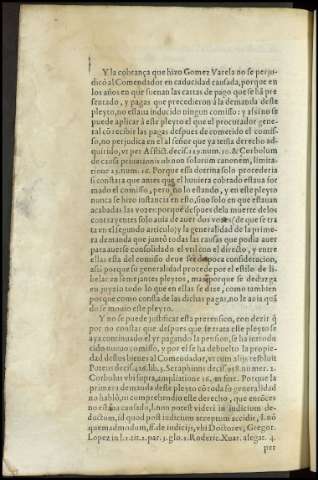 Y la cobrança que hizo Gomez Varela no se perju-
dicò al Comendador en caducidad causada, porque en
los años en que suenan las cartas de pago que se hã pre
sentado, y pagas que precedieron á la demanda deste
pleyto, no estaua inducido ningun comisso: y assi no se
puede aplicar à este pleyto el que el procurador gene-
ral cõ recibir las pagas despues de cometido el comis-
so, no perjudica en el al señor que ya tenia derecho ad-
quirido, vt per Afflict. decis. 119. num. 10. & Corbolum
de causa priuationis ob non solutum canonem, limita-
tione 15. num. 16. Porque essa doctrina solo procederia
si constara que antes que el huuiera cobrado estaua for
mado el comisso, pero no lo estando, y en este pleyto
nunca se hizo instancia en esto, sino solo en que estauan
acabadas las vozes: porque despues de la muerte de los
contrayentes solo auia de auer dos vozes, de que se tra
ta en el segundo articulo; y la generalidad de la prime-
ra demanda que juntò todas las causas que podia auer
para auerse consolidado el vtil con el directo, y entre
ellas esta del comisso deue ser de poca consideracion,
assi porque su generalidad procede por el estilo de li-
belar en semejantes pleytos, mas que porque se deduzga
en juyzio todo lo que en ellas se dize, como tambien
porque como consta de las dichas pagas, no le auia quã
do se mouio este pleyto.
Y no se puede justificar esta pretension, con dezir q̃
por no constar que despues que se trata este pleyto se
aya continuado el yr pagando la pension, se ha introdu
cido nueuo comisso, y por el se ha debuelto la propie-
dad destos bienes al Comendador, vt cum alijs resoluit
Puteus decis. 416. lib. 3. Seraphinus decis. 958. numer. 2.
Corbulus vbi supra, ampliatione 16. in fine. Porque la
primera demanda deste pleyto cõ toda su generalidad
no hablò, ni comprehendio este derecho, que entõces
no estaua causado, & non potest videri in iudicium de-
ductum, id quod post iudicium acceptum accidit, l. nõ
quemadmodum, ff. de iudicijs, vbi Doctores, Gregor.
Lopez in l. 2. tit. 2. par. 3. glo. 2. Roderic. Xuar. alegat. 4.
per